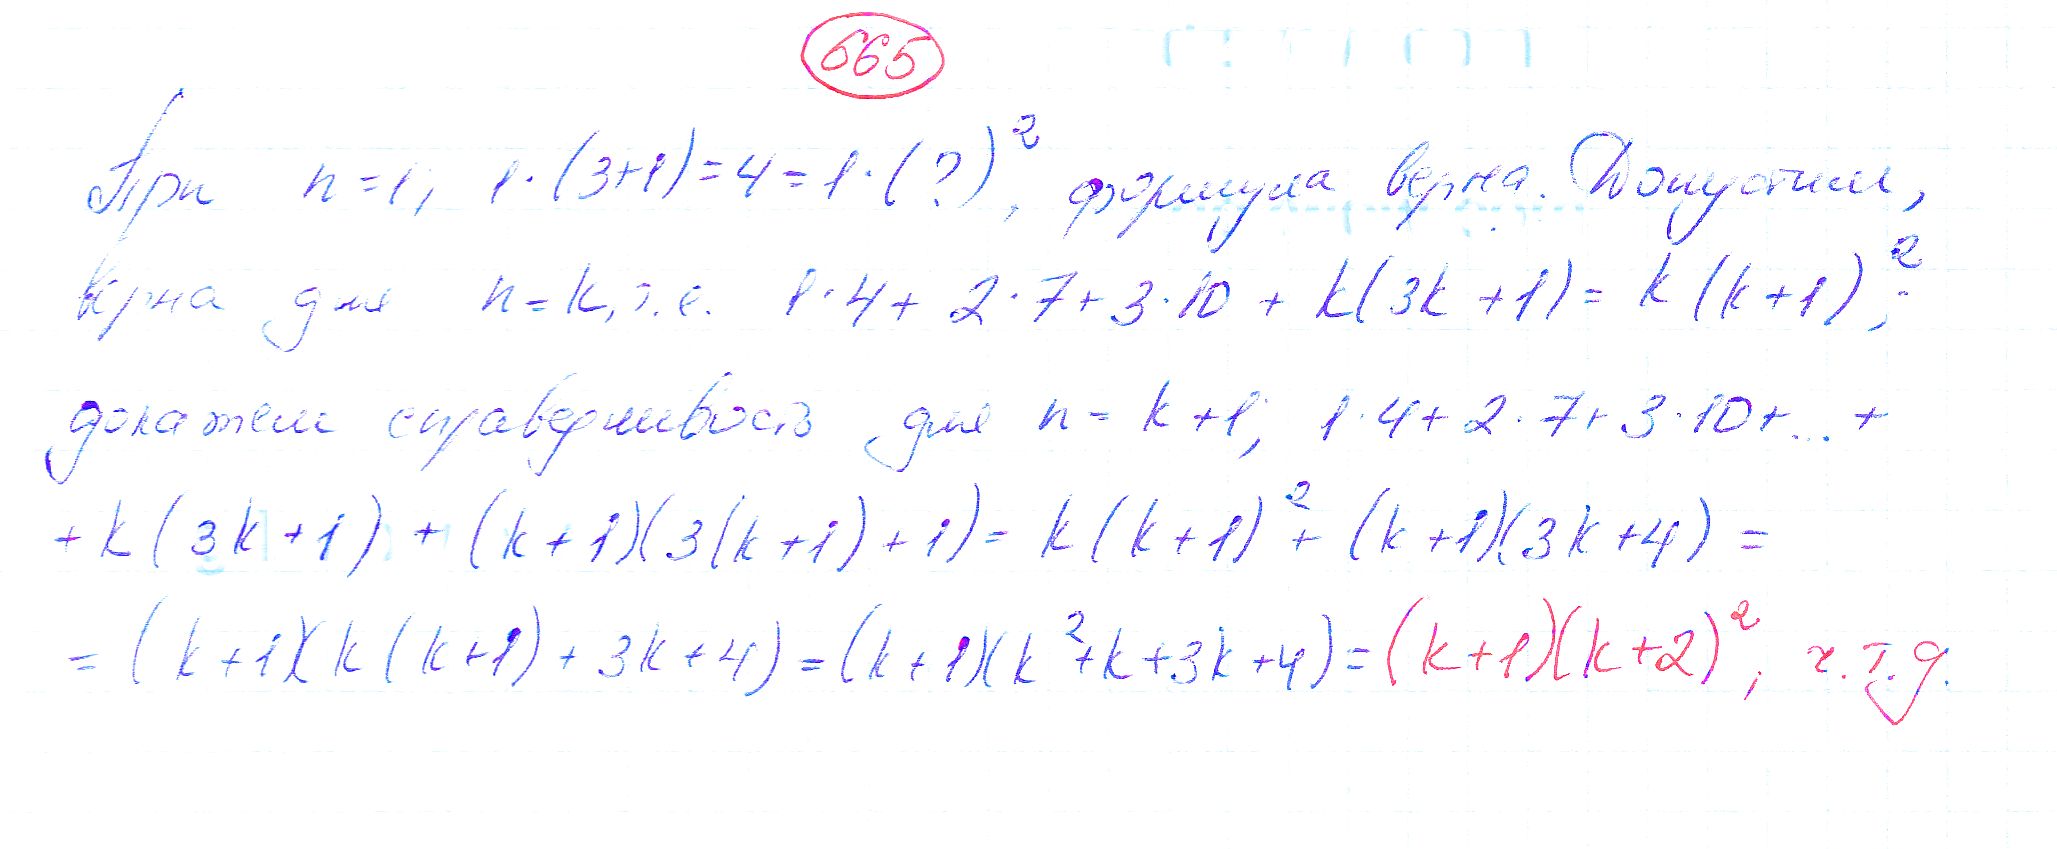 665
При n=1, 1·(3+1)=4=1·(?)², формула верна. Допустим,
верна для n=k, т.е. 1·4+2·7+3·10+k(3k+1)=k(k+1)²;
докажем справедливость для n=k+1; 1·4+2·7+3·10+...+
+k(3k+1)+(k+1)(3(k+1)+1)=k(k+1)²+(k+1)(3k+4)=
=(k+1)(k(k+1)+3k+4)=(k+1)(k²+k+3k+4)=(k+1)(k+2)², ч.т.д.